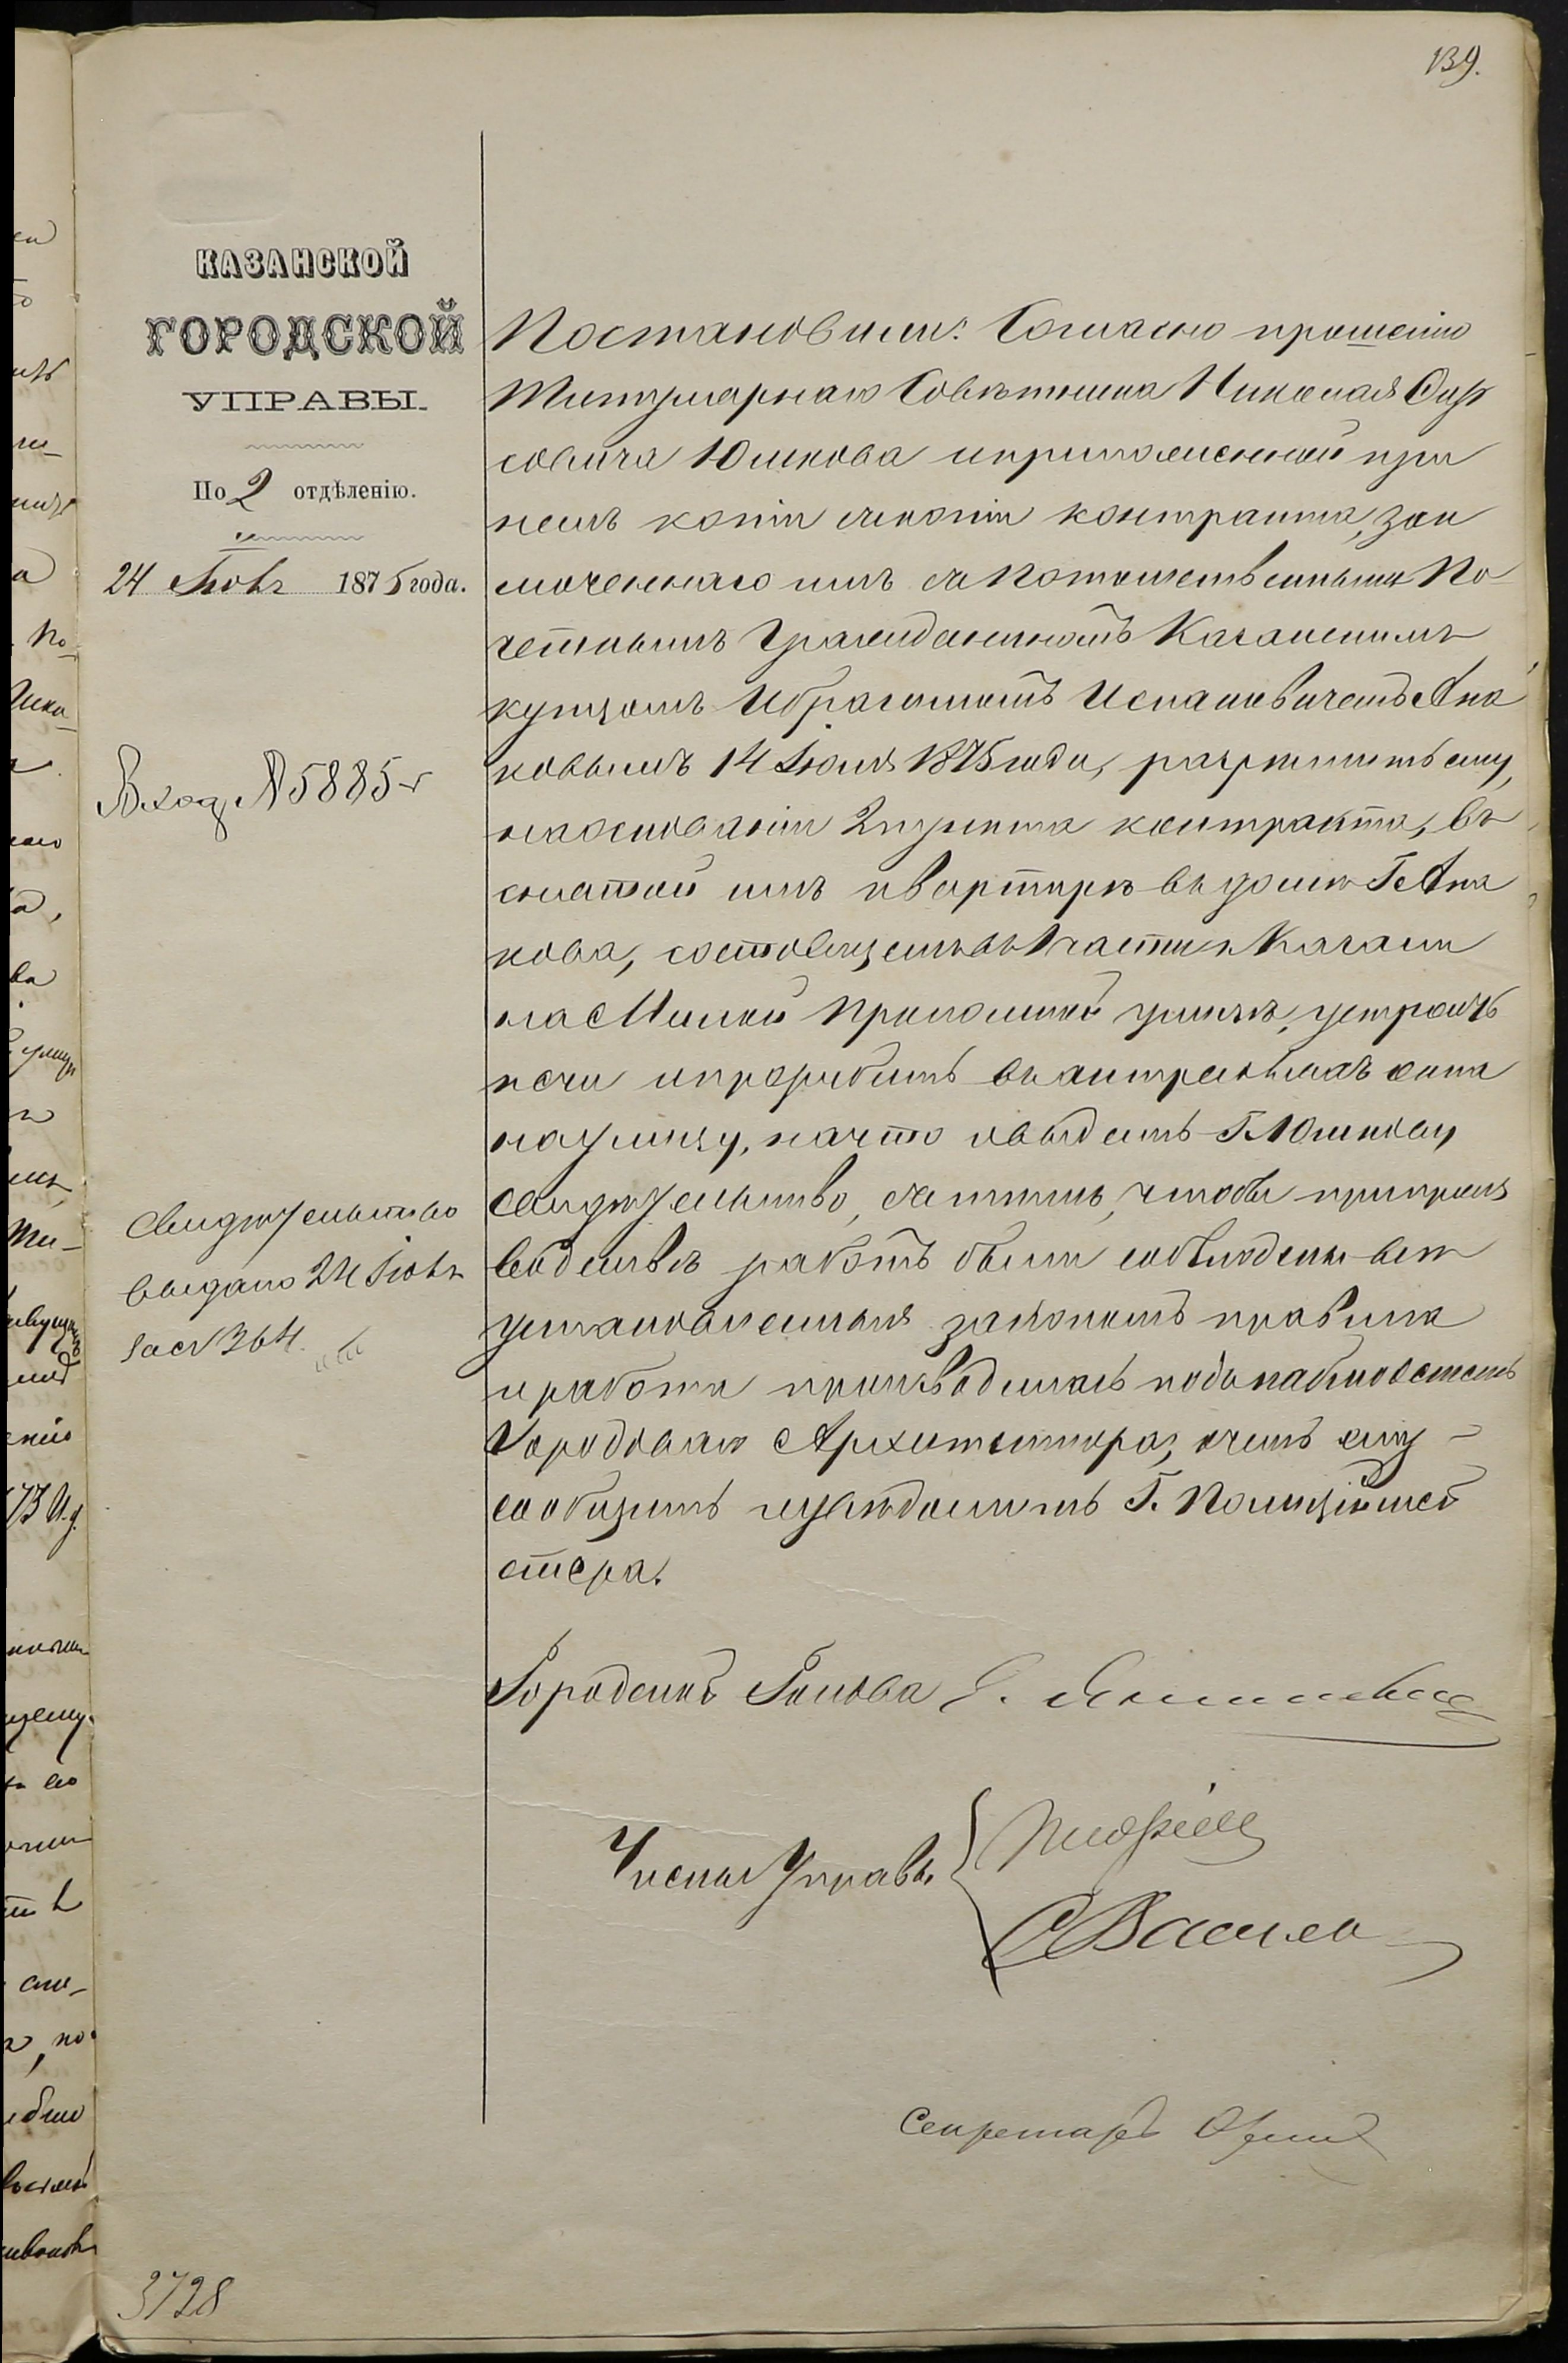 139.
КАЗАНСКОЙ
ГОРОДСКОЙ
УПРАВЫ.
По 2 отдѣленію.
24 Іюля 1875 года.
Вход. № 5885
Свидѣтельство
выдано 24 Іюля
за № 364.
Постановили: Согласно прошенію
Титулярнаго Совѣтника Николая Фир
совича Юшкова и приложенной при
немъ копіи съ копіи контракта, зак
люченнаго имъ съ Потомственнымъ По
четнымъ Гражданиномъ Казанскимъ
купцомъ Ибрагимомъ Исхаковичемъ Апа
ковымъ 14 Іюля 1875 года, разрѣшить ему,
на основаніи 2 пункта контракта, въ
снятой имъ квартирѣ въ домѣ Г. Апа
кова, состоящемъ въ 1 части г. Казани
на Малой Проломной улицѣ, устроить
печи и прорубить въ антресоляхъ окна
на улицу, на что и выдать Г. Юшкову
свидѣтельство, съ тѣмъ, чтобы при произ
водствѣ работъ были соблюдены всѣ
установленныя закономъ правила
и работа производилась подъ наблюденіемъ
Городоваго Архитектора, о чемъ ему
сообщить и увѣдомить Г. Полиціймей
стера.
Городской Голова
Члены Управы
Секретарь
3728